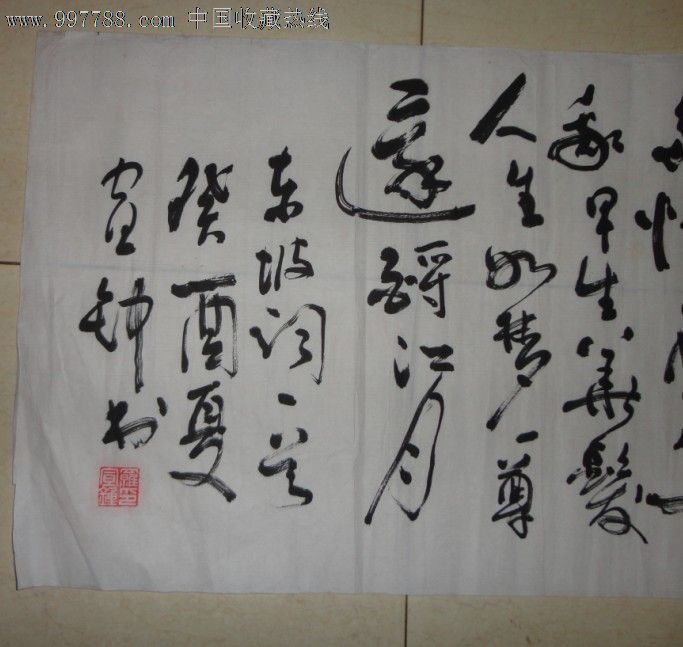 www.997788.com 中国收藏热线
我早生華髮
人生如梦一尊
還酹江月
东坡词一首
癸酉夏
宣钟书